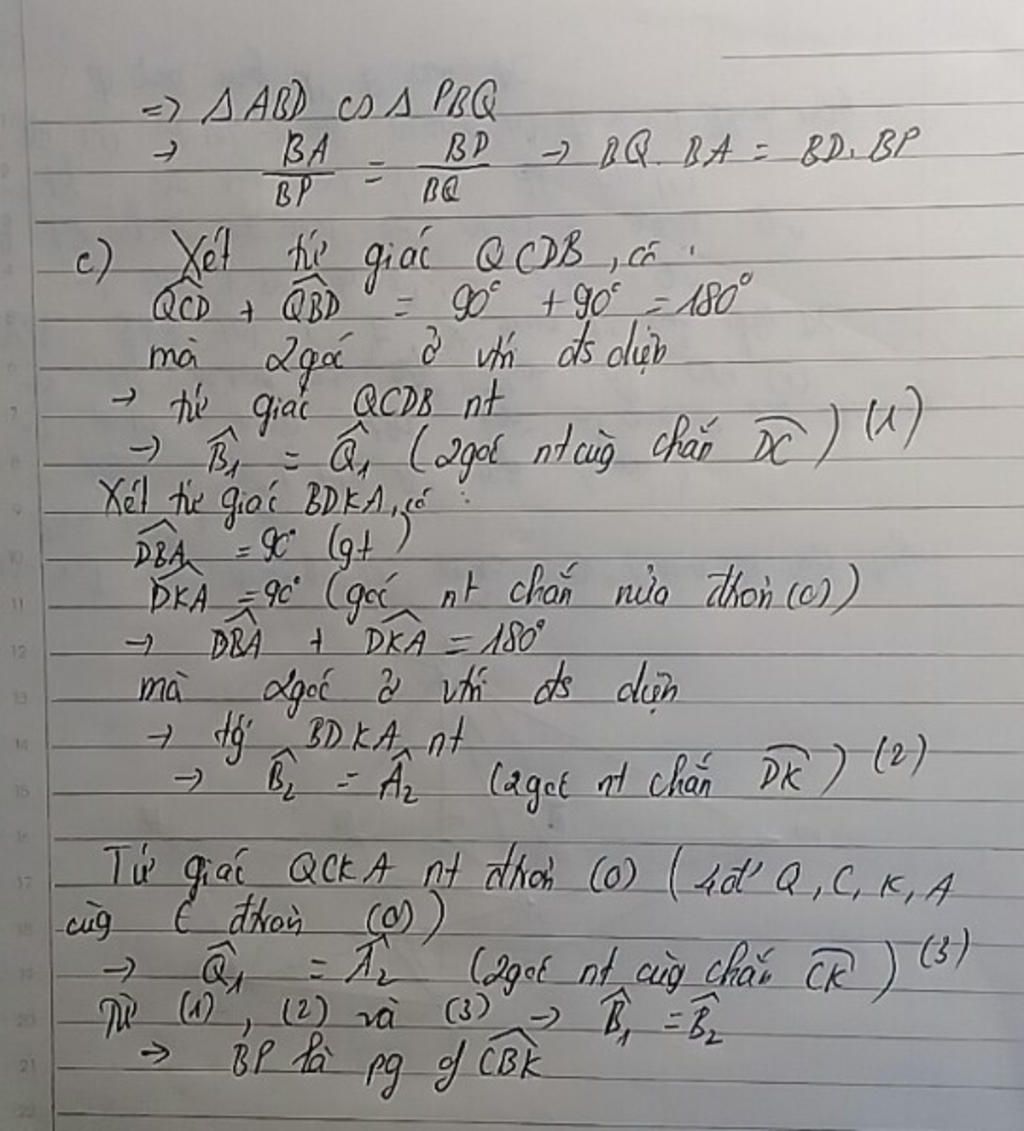 => Δ ABD ∽ Δ PBQ
→ BA/BP = BD/BQ → BQ. BA = BD. BP
c) Xét tứ giác QCDB, có :
QCD + QBD = 90° + 90° = 180°
mà 2 góc ở vtrí đs diện
→ tứ giác QCDB nt
→ B̂₁ = Q̂₁ (2 góc nt cùg chắn DC) (1)
Xét tứ giác BDKA, có :
DBA = 90° (gt)
DKA = 90° (góc nt chắn nửa đtròn (O))
→ DBA + DKA = 180°
mà 2 góc ở vtrí đs diện
→ tg BDKA nt
→ B̂₂ = Â₂ (2 góc nt chắn DK) (2)
Tứ giác QCKA nt đtròn (O) (4 đ' Q, C, K, A
cùg ∈ đtròn (O))
→ Q̂₁ = Â₂ (2 góc nt cùg chắn CK) (3)
Từ (1), (2) và (3) → B̂₁ = B̂₂
→ BP là pg of CBK